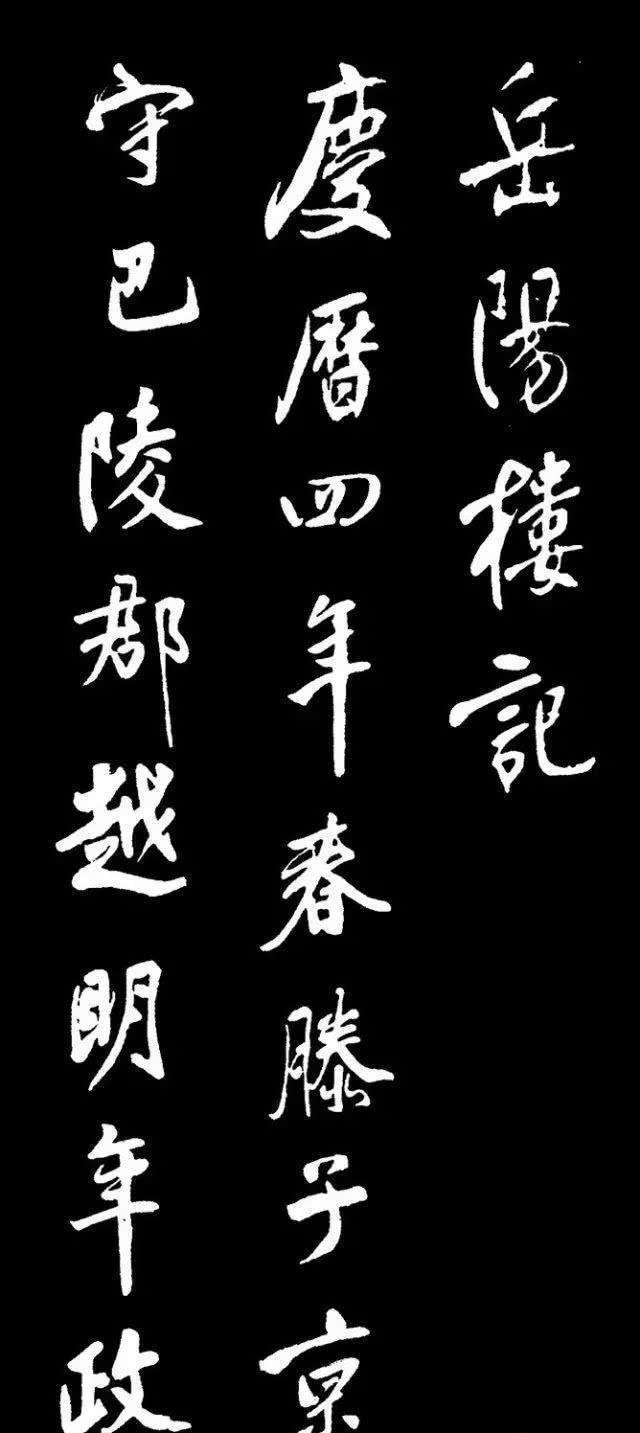 岳陽樓記
慶曆四年春滕子京
守巴陵郡越明年政